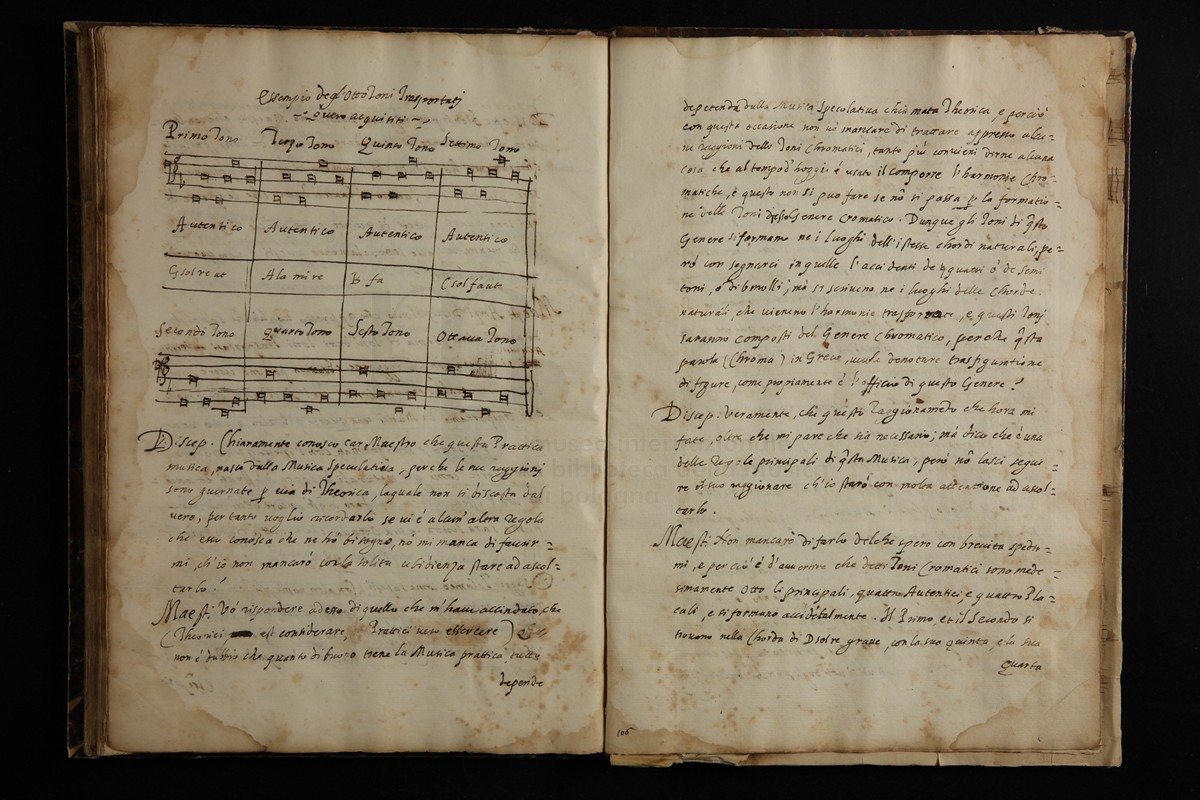 Essempio degl' Otto Toni Trasportati
Overo acquisiti
Primo Tono Terzo Tono Quinto Tono Settimo Tono
Autentico Autentico Autentico Autentico
Gsolreut Alamire Bfa Csolfaut
Secondo Tono Quarto Tono Sesto Tono Ottavo Tono
Discep. Chiaramente conosco car Maestro che questa Prattica
musica, nasca dalla Musica Speculativa, perche le sue raggionj
sono guernate p via di Theorica, laquale non si discosta dal
vero, pertanto voglio ricordarlo se vi é alcun' altra regola
che esso conosca che ne hó bisogno, nó mi manca di favurir=
mi, ch'io non mancaró con la solita ubidienza stare ad ascol=
tarlo.
Maest. Vó rispondere adeso di quello che m'have accindato, che
(Theorici est considerare, Prattici vero essercere)
non é dubbio che quanto di buono tiene la Musica prattica, tutto
depende
depetenda dalla Musica Speculativa chiamata Theorica, e perció
con questa occasione non vó mancare di trattare appresso alcu=
ne raggioni delli Toni Chromatici, tanto piú convieni dirne alcuna
cosa che al tempo d'hoggi é usato il comporre l'harmonie Chro=
matiche, é questo non si puo fare se nó si possa p la formatio=
ne delli Toni desso Genere Cromatico. Dunque gli Toni di q̃sto
Genere si formamo ne i luoghi dell'istesse chordi naturali, pe=
ró con segnarci in quelle l'accidenti de ♮ quatri ó de semi
toni, ó di b molli, má si scriveno ne i luoghi delle chorde
naturali, che vieneno l'harmonie trasformare, e questi Tonj
saranno composti del Genere Chromatico, perche q̃sta
parola (Chroma) in Greco, vuole denotare trasfiguratione
di figure, come propriamente é l'officio di questo Genere.
Discep: Veramente, che questo raggionameto che hora mi
fate, oltre che mi pare che sia necessario; má dico che é una
delle regole principali di q̃sta Musica; peró nó lasci segui=
re il suo raggionare ch'io staró con molta attentione ad ascol=
tarlo.
Maest: Non mancaró di farlo delche spero con brevitá spedir=
mi, e perció é d'avvertire che detti Toni Cromatici sono mede=
simamente Otto li principali, quattro Autentici, e quattro Pla
cali, e si formano accidétalmente. Il Primo, et il Secondo si
trovono nella Chorda di Dsolre grave, con la sua quinta, e la sua
quarta
106